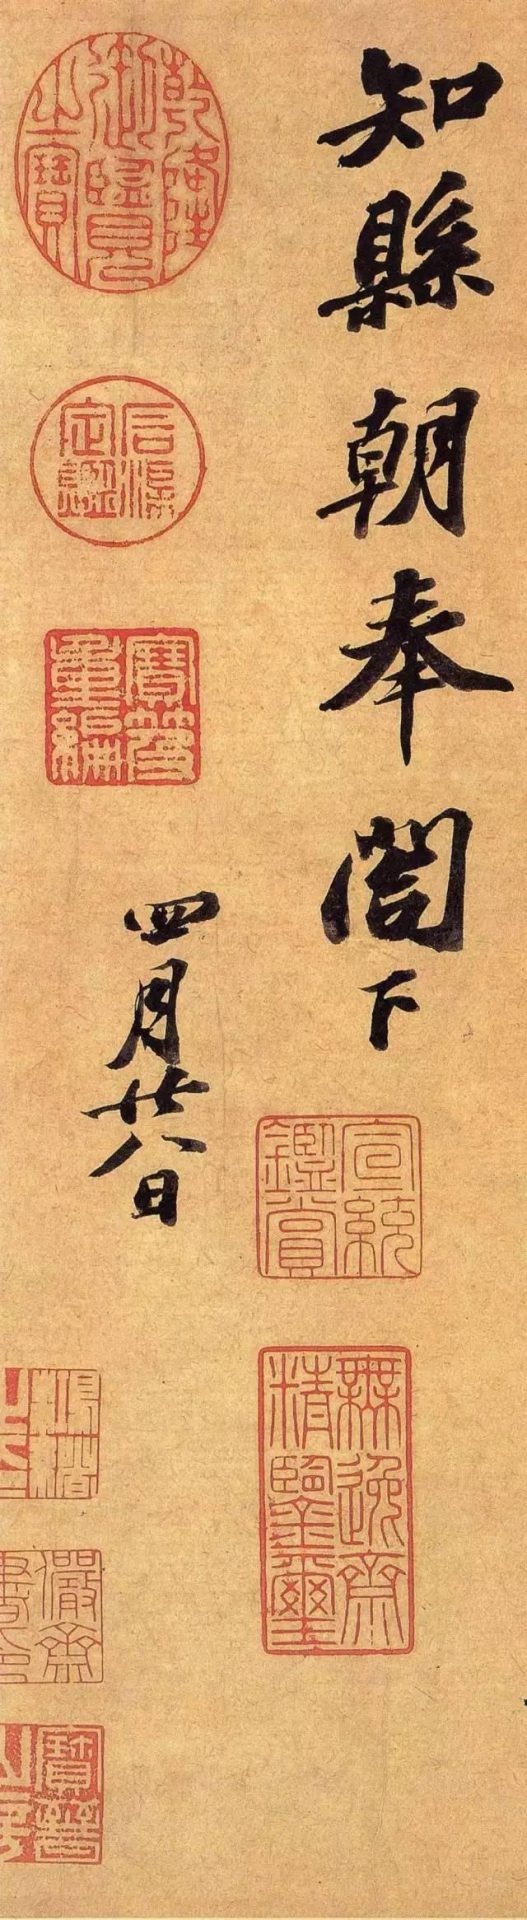 知縣朝奉閤下
宣統鑑賞
無逸齋精鑒璽
乾隆御覽之寶
石渠定鑑
寶笈重編
四月廿八日
儼齋